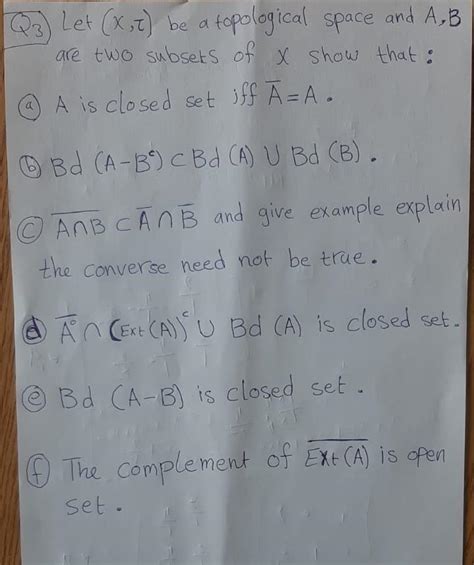 Q3) Let (X,τ) be a topological space and A,B
are two subsets of X show that :
ⓐ A is closed set iff A̅ = A .
ⓑ Bd (A-Bᶜ) ⊂ Bd (A) ∪ Bd (B) .
ⓒ A̅∩̅B̅ ⊂ A̅ ∩ B̅ and give example explain
the converse need not be true .
ⓓ A̅°̅ ∩ (Ext (A))ᶜ ∪ Bd (A) is closed set .
ⓔ Bd (A-B) is closed set .
ⓕ The complement of E̅x̅t̅ ̅(̅A̅)̅ is open
set .